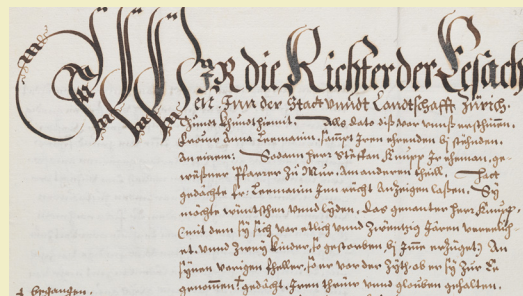 WIR die Richter der Eesach
en, Inn der Statt unnd Landtschafft Zürich.
Thünd khundt hiemit. Als dato diß vor unnß erschinen,
Frouw Anna Leemanin, sampt Iren eherenden bÿständen,
An einem: Sodann Herr Steffan Knupp Ir eheman, ge-
wäßner Pfarrer zu Mur, Am anderen theill, Hatt
gedachte fr: Leemanin Inn rächt Anzeigen lassen, Sÿ
möchte wünschen und lÿden, das genanter Herr Knupp,
(mit dem sÿ sich vor etlich und zwäntzig Jaren vereelich-
et, und zweÿ kinder, so gestorben bÿ Imme erzüget) An
sÿnen vorigen fhäller, so er vor der Zÿth, ob er sÿ zur Ee
genommen gedacht, Iren thrüw und glouben gehalten.
begangen.